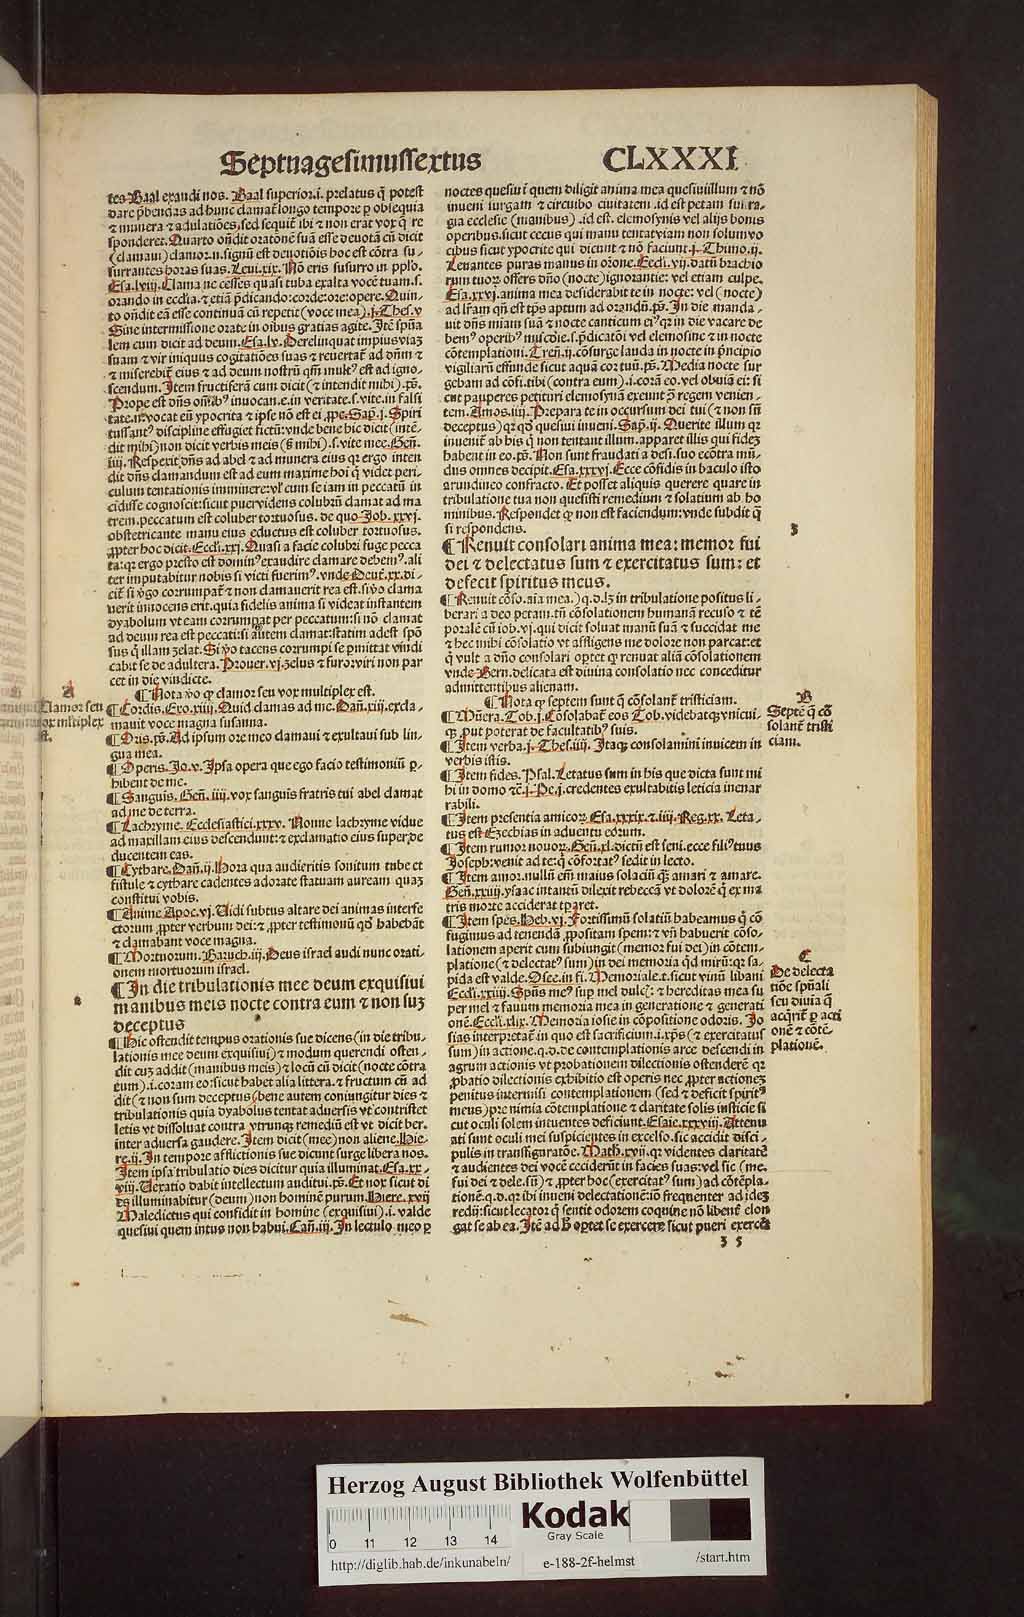 Septuagesimussextus CLXXXI
tes Baal exaudi nos. Baal superior .i. prelatus q̄ potest
dare p̄bendas ad hunc clamāt longo tempore ꝑ obsequia
⁊ munera ⁊ adulatiōes, sed sequit̄ ibi ⁊ non erat vox q̄ re
sponderet. Quarto oñdit oratōnē suā esse deuotā cū dicit
(clamaui) clamor .n. signū est deuotiōis hoc est cōtra su-
surrantes horas suas. Leui. xix. Nō eris susurro in pplo.
Esa. lviii. Clama ne cesses quasi tuba exalta vocē tuam. s.
orando in ecclia. ⁊ etiā p̄dicando: corde: ore: opere. Quin-
to oñdit eā esse continuā cū repetit (voce mea) .j. Thes. v
Sine intermissione orate in oibus gratias agite. Itē spūa
lem cum dicit ad deum. Esa. lv. Derelinquat impius viaꝫ
suam ⁊ vir iniquus cogitatiōes suas ⁊ reuertat̄ ad dñm ⁊
⁊ miserebit̄ eius ⁊ ad deum nostrū qm̄ multꝰ est ad igno-
scendum. Item fructiferā cum dicit (⁊ intendit mihi) .ps̄.
Prope est dñs om̄ibꝰ inuocan. e. in veritate. s. vite. in falsi
tate .n. vocat eū ypocrita ⁊ ipse nō est ei ꝓpe. Sap. j. Spiri
tussanctꝰ discipline effugiet fictū: vnde bene hic dicit (intē-
dit mihi) non dicit verbis meis (s̄ mihi) .s. vite mee. Gen̄.
iiij. Respexit dñs ad abel ⁊ ad munera eius qꝛ ergo inten
dit dñs clamandum est ad eum maxime hoi q̄ videt peri-
culum tentationis imminere: vl' cum se iam in peccatū in
cidisse cognoscit: sicut puer videns colubrū clamat ad ma
trem. peccatum est coluber tortuosus. de quo Iob. xxvj.
obstetricante manu eius eductus est coluber tortuosus.
ꝓpter hoc dicit. Eccli. xxj. Quasi a facie colubri fuge pecca
ta: qꝛ ergo presto est dominꝰ exaudire clamare debemꝰ. ali
ter imputabitur nobis si victi fuerimꝰ. vnde Deut̄. xx. di-
cit̄ si v̊go corrumpat̄ ⁊ non clamauerit rea est. si v̊o clama
uerit innocens erit. quia fidelis anima si videat instantem
dyabolum vt eam corrumpat per peccatum: si nō clamat
ad deum rea est peccati: si autem clamat: statim adest spō
sus q̄ illam zelat. Si v̊o tacens corrumpi se permittat vindi
cabit se de adultera. Prouer. vj. zelus ⁊ furor viri non par
cet in die vindicte.
¶ Nota v̊o ꝙ clamor seu vox multiplex est.
A
Clamor seu
vox multiplex
est.
¶ Cordis. Exo. xiiij. Quid clamas ad me. Dan̄. xiij. excla-
mauit voce magna susanna.
¶ Oris. ps̄. Ad ipsum ore meo clamaui ⁊ exultaui sub lin-
gua mea.
¶ Operis. Io. v. Ipsa opera que ego facio testimoniū ꝑ-
hibent de me.
¶ Sanguis. Gen̄. iiij. vox sanguis fratris tui abel clamat
ad me de terra.
¶ Lachryme. Ecclesiastici. xxxv. Nonne lachryme vidue
ad maxillam eius descendunt: ⁊ exclamatio eius super de
ducentem eas.
¶ Cythare. Dan̄. ij. Hora qua audieritis sonitum tube et
fistule ⁊ cythare cadentes adorate statuam auream quaꝫ
constitui vobis.
¶ Anime Apoc. vj. Vidi subtus altare dei animas interfe
ctorum ꝓpter verbum dei: ⁊ ꝓpter testimoniū qd' habebāt
⁊ clamabant voce magna.
¶ Mortuorum. Baruch. iij. Deus israel audi nunc orati-
onem mortuorum israel.
¶ In die tribulationis mee deum exquisiui
manibus meis nocte contra eum ⁊ non suꝫ
deceptus
¶ Hic ostendit tempus orationis sue dicens (in die tribu-
lationis mee deum exquisiui) ⁊ modum querendi osten-
dit cuꝫ addit (manibus meis) ⁊ locū cū dicit (nocte cōtra
eum) .i. coram eo: sicut habet alia littera. ⁊ fructum cū ad
dit (⁊ non sum deceptus) bene autem coniungitur dies ⁊
tribulationis quia dyabolus tentat aduersis vt contristet
letis vt dissoluat contra vtrunqꝫ remediū est vt dicit ber.
inter aduersa gaudere. Item dicit (mee) non aliene. Hie-
re. ij. In tempore afflictionis sue dicunt surge libera nos.
Item ipsa tribulatio dies dicitur quia illuminat. Esa. xx-
viij. Vexatio dabit intellectum auditui. ps̄. Et nox sicut di
es illuminabitur (deum) non hominē purum. Hiere. xvij
Maledictus qui confidit in homine (exquisiui) .i. valde
quesiui quem intus non habui. Can̄. iij. In lectulo meo ꝑ
noctes quesiui quem diligit anima mea quesiui illum ⁊ nō
inueni surgam ⁊ circuibo ciuitatem .id est petam suffra-
gia ecclesie (manibus) .id est. elemosynis vel alijs bonis
operibus. sicut cecus qui manu tentat viam non solum vo
cibus sicut ypocrite qui dicunt ⁊ nō faciunt. j. Thimo. ij.
Leuantes puras manus in orōne. Eccli. vij. datū brachio
rum tuoꝝ offers dño (nocte) ignorantie: vel etiam culpe.
Esa. xxvj. anima mea desiderabit te in nocte: vel (nocte)
ad lr̄am qñ est tp̄s aptum ad orandū. ps̄. In die manda-
uit dñs miam suā ⁊ nocte canticum eiꝰ qꝛ in die vacare de
bemꝰ operibꝰ miscdie. s. p̄dicatōi vel elemosine ⁊ in nocte
cōtemplationi. Tren̄. ij. cōsurge lauda in nocte in p̄ncipio
vigiliarū effunde sicut aquā cor tuū. ps̄. Media nocte sur
gebam ad cōfi. tibi (contra eum) .i. corā eo. vel obuiā ei: si
cut pauperes petituri elemosynā exeunt p̄ regem venien-
tem. Amos. iiij. Prepara te in occursum dei tui (⁊ non sū
deceptus) qꝛ qd' quesiui inueni. Sap. ij. Querite illum qꝛ
inuenit̄ ab his q̄ non tentant illum. apparet illis qui fideꝫ
habent in eo. ps̄. Non sunt fraudati a desi. suo ecōtra mū-
dus omnes decipit. Esa. xxxvj. Ecce cōfidis in baculo isto
arundineo confracto. Et posset aliquis querere quare in
tribulatione tua non quesisti remedium ⁊ solatium ab ho
minibus. Respondet ꝙ non est faciendum: vnde subdit q̄
si respondens.
3
¶ Renuit consolari anima mea: memor fui
dei ⁊ delectatus sum ⁊ exercitatus sum: et
defecit spiritus meus.
¶ Renuit cōso. aīa mea.) q. d. lꝫ in tribulatione positus li-
berari a deo petam. tñ cōsolationem humanā recuso ⁊ tē
poralē cū iob. vj. qui dicit soluat manū suā ⁊ succidat me
⁊ hec mihi cōsolatio vt affligens me dolore non parcat: et
q̄ vult a dño consolari oꝑtet ꝙ renuat aliā cōsolationem
vnde Bern. delicata est diuina consolatio nec conceditur
admittentibus alienam.
¶ Nota ꝙ septem sunt q̄ cōsolant̄ tristiciam.
B
Septē q̄ cō
solant̄ tristi
ciam.
¶ Mūera. Tob. j. Cōsolabat̄ eos Tob. videbatqꝫ vnicui-
qꝫ put poterat de facultatibꝰ suis.
¶ Item verba. j. Thes. iiij. Itaqꝫ consolamini inuicem in
verbis istis.
¶ Item fides. Psal. Letatus sum in his que dicta sunt mi
hi in domo ⁊c̄. j. Pe. j. credentes exultabitis leticia inenar
rabili.
¶ Item presentia amicoꝝ. Esa. xxxix. ⁊ iiij. Reg. xx. Leta-
tus est Ezechias in aduentu eorum.
¶ Item rumor nouoꝝ. Gen̄. xl. dictū est seni. ecce filiꝰ tuus
Ioseph: venit ad te: q̄ cōfortatꝰ sedit in lecto.
¶ Item amor. nullū em̄ maius solaciū qꝫ amari ⁊ amare.
Gen̄. xxiiij. ysaac intantū dilexit rebeccā vt dolorē q̄ ex ma
tris morte acciderat tꝑaret.
¶ Item spes. Heb. vj. Fortissimū solatiū habeamus q̄ cō
fugimus ad tenendā ꝓpositam spem: ⁊ vñ habuerit cōso-
lationem aperit cum subiungit (memor fui dei) in cōtem-
platione (⁊ delectatꝰ sum) in dei memoria qd mirū: qꝛ sa-
pida est valde. Osee. in fi. Memoriale. t. sicut vinū libani
Eccli. xxiiij. Spūs meꝰ sup mel dulc': ⁊ hereditas mea su
per mel ⁊ fauum memoria mea in generatione ⁊ generati
onē. Eccli. xlix. Memoria iosie in cōpositione odoris. Io
sias interpretat̄ in quo est sacrificium .i. xp̄s (⁊ exercitatus
sum) in actione. q. d. de contemplationis arce descendi in
agrum actionis vt probationem dilectionis ostenderē qꝛ
ꝓbatio dilectionis exhibitio est operis nec ꝓpter actioneꝫ
penitus intermisi contemplationem (sed ⁊ deficit spiritꝰ
meus) pre nimia cōtemplatione ⁊ claritate solis iusticie si
cut oculi solem intuentes deficiunt. Esaie. xxxviij. Attenu
ati sunt oculi mei suspicientes in excelso. sic accidit disci-
pulis in transfiguratōe. Math. xvij. qꝛ videntes claritatē
⁊ audientes dei vocē ceciderūt in facies suas: vel sic (me.
fui dei ⁊ dele. sū) ⁊ ꝓpter hoc (exercitatꝰ sum) ad cōtēpla-
tionē. q. d. qꝛ ibi inueni delectationē: iō frequenter ad ideꝫ
redij: sicut lecator q̄ sentit odorem coquine nō libent̄ elon
gat se ab ea. Itē ad h̄ oꝑtet se exercere sicut pueri exercēt
C
De delecta
tiōe spūali
seu diuia q̄
acq̄rit̄ ꝑ acti
onē ⁊ cōtē-
plationē.
3 5
Herzog August Bibliothek Wolfenbüttel
0 11 12 13 14
Kodak
Gray Scale
http://diglib.hab.de/inkunabeln/ e-188-2f-helmst /start.htm